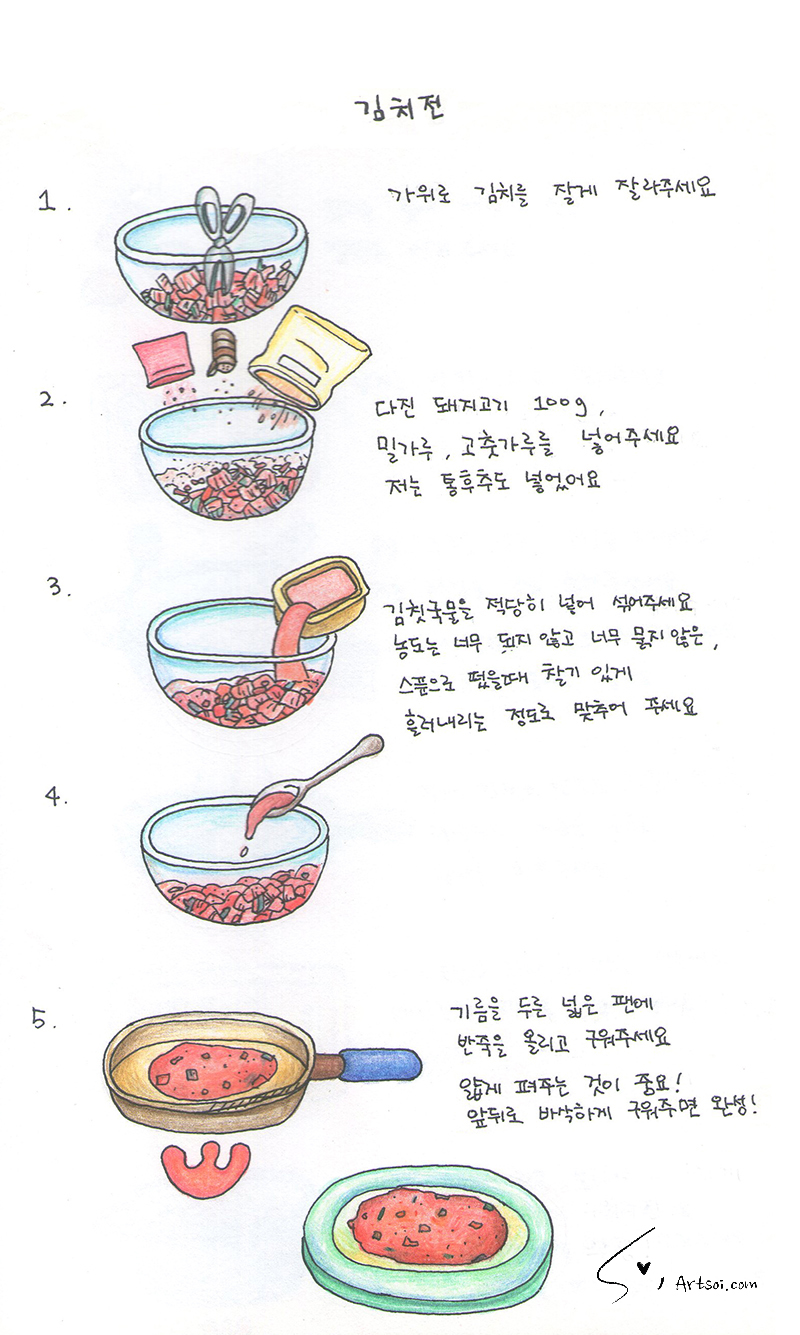 김치전
1.
가위로 김치를 잘게 잘라주세요
2.
다진 돼지고기 100g,
밀가루, 고춧가루를 넣어주세요
저는 통후추도 넣었어요
3.
김칫국물을 적당히 넣어 섞어주세요
농도는 너무 되지 않고 너무 묽지 않은,
스푼으로 떴을때 찰기 있게
흘러내리는 정도로 맞추어 주세요
4.
5.
기름을 두른 넓은 팬에
반죽을 올리고 구워주세요
얇게 펴주는 것이 중요!
앞뒤로 바삭하게 구워주면 완성!
Artsoi.com